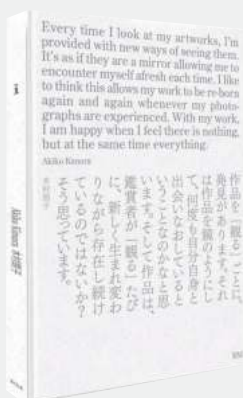 Every time I look at my artworks, I'm
provided with new ways of seeing them.
It's as if they are a mirror allowing me to
encounter myself afresh each time. I like
to think this allows my work to be re-born
again and again whenever my photo-
graphs are experienced. With my work,
I am happy when I feel there is nothing,
but at the same time everything.
Akiko Kimura
作品を「観る」ごとに、
発見があります。それ
は作品を鏡のようにし
て、何度も自分自身と
出会いなおしていると
いうことなのかなと思
います。そして作品は、
鑑賞者が「観る」たび
に、新しく生まれ変わ
りながら存在し続け
ているのではないか?
そう思っています。